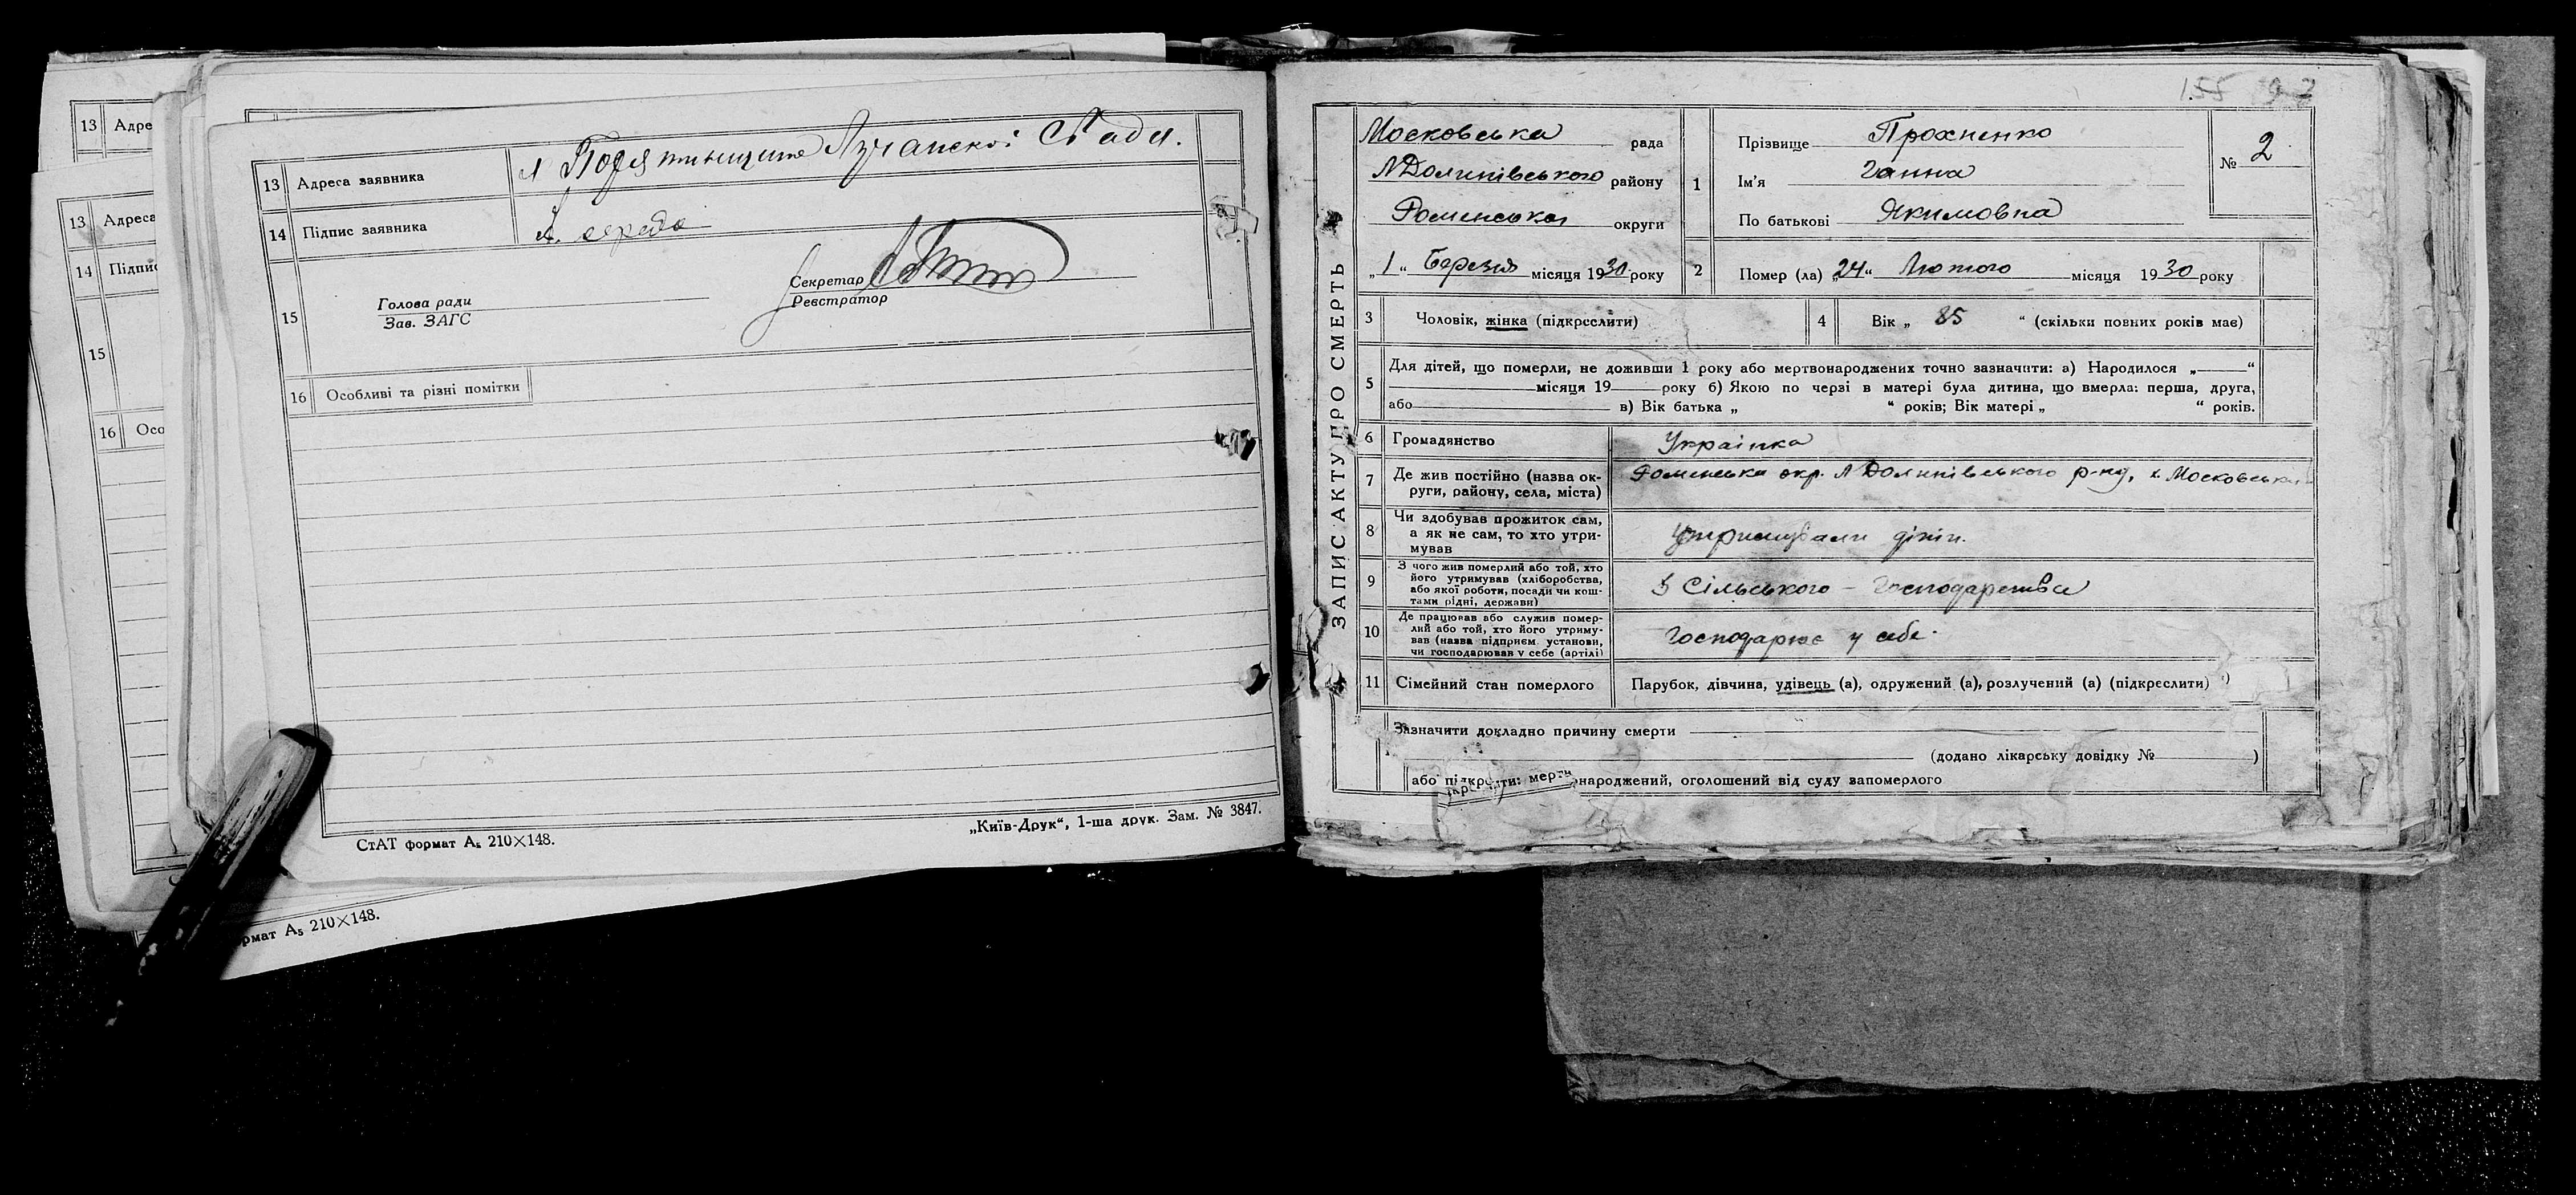 13 Адре
13 Адреса
14 Підпис
15
16 Осо
рмат А₅ 210×148.
13 Адреса заявника Лучанской С Ради.
14 Підпис заявника А. середа
15 Голова ради
Зав. ЗАГС
Секретар
Реєстратор
16 Особливі та різні помітки
СтАТ формат А₅ 210×148.
„Київ-Друк“, 1-ша друк. Зам. № 3847.
155
ЗАПИС АКТУ ПРО СМЕРТЬ
Московська рада
ЛДолинівського району
Роменська округи
„1“ Березня місяця 1930 року
1 Прізвище Прохненко
Ім'я Ганна
По батькові Якимовна
№ 2
2 Помер (ла) „24“ Лютого місяця 1930 року
3 Чоловік, жінка (підкреслити)
4 Вік „ 85 “ (скільки повних років має)
5 Для дітей, що померли, не доживши 1 року або мертвонароджених точно зазначити: а) Народилося „ “
місяця 19 року б) Якою по черзі в матері була дитина, що вмерла: перша, друга,
або в) Вік батька „ “ років; Вік матері „ “ років.
6 Громадянство Українка
7 Де жив постійно (назва ок-
руги, району, села, міста)
Роменська окр. ЛДолинівського р-ну, х. Московська
8 Чи здобував прожиток сам,
а як не сам, то хто утри-
мував
утримували діти.
9 З чого жив померлий або той, хто
його утримував (хліборобства,
або якої роботи, посади чи кош-
тами рідні, держави)
З Сільського - Господарства
10 Де працював або служив помер-
лий або той, хто його утриму-
вав (назва підприєм. установи,
чи господарював у себе (артілі)
Господарює у себе.
11 Сімейний стан померлого Парубок, дівчина, удівець (а), одружений (а), розлучений (а) (підкреслити)
Зазначити докладно причину смерти
(додано лікарську довідку № )
або підкреслити: мертвонароджений, оголошений від суду запомерлого